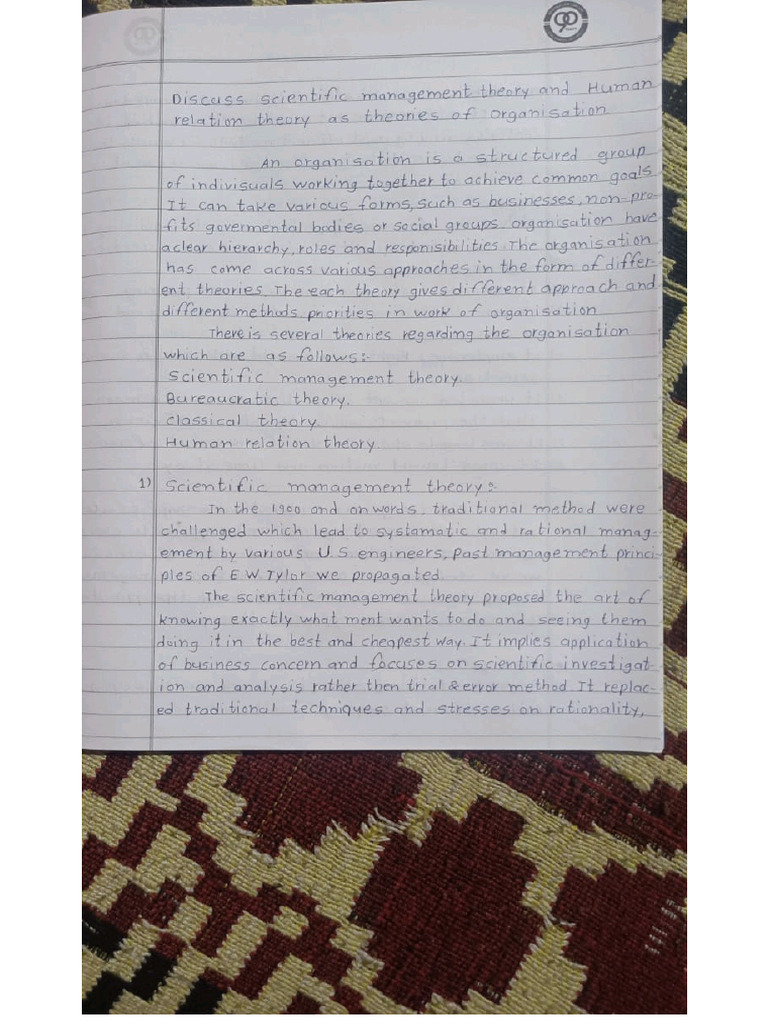 90
Discuss scientific management theory and Human
relation theory as theories of organisation
An organisation is a structured group
of indivisuals working together to achieve common goals
It can take various forms, such as businesses, non-pro-
fits govermental bodies or social groups organisation have
a clear hierarchy, roles and responisibilities. The organisation
has come across various approaches in the form of differ-
ent theories. The each theory gives different approach and
different methods priorities in work of organisation
There is several theories regarding the organisation
which are as follows:-
Scientific management theory.
Bureaucratic theory.
Classical theory.
Human relation theory.
1) Scientific management theory:-
In the 1900 and onwords, traditional method were
challenged which lead to systamatic and rational manag-
ement by various U.S. engineers, Past management princi-
ples of E.W. Tylor we propagated.
The scientific management theory proposed the art of
knowing exactly what ment wants to do and seeing them
doing it in the best and cheapest way. It implies application
of business concern and focuses on scientific investigat-
ion and analysis rather then trial & error method It replac-
ed traditional techniques and stresses on rationality,